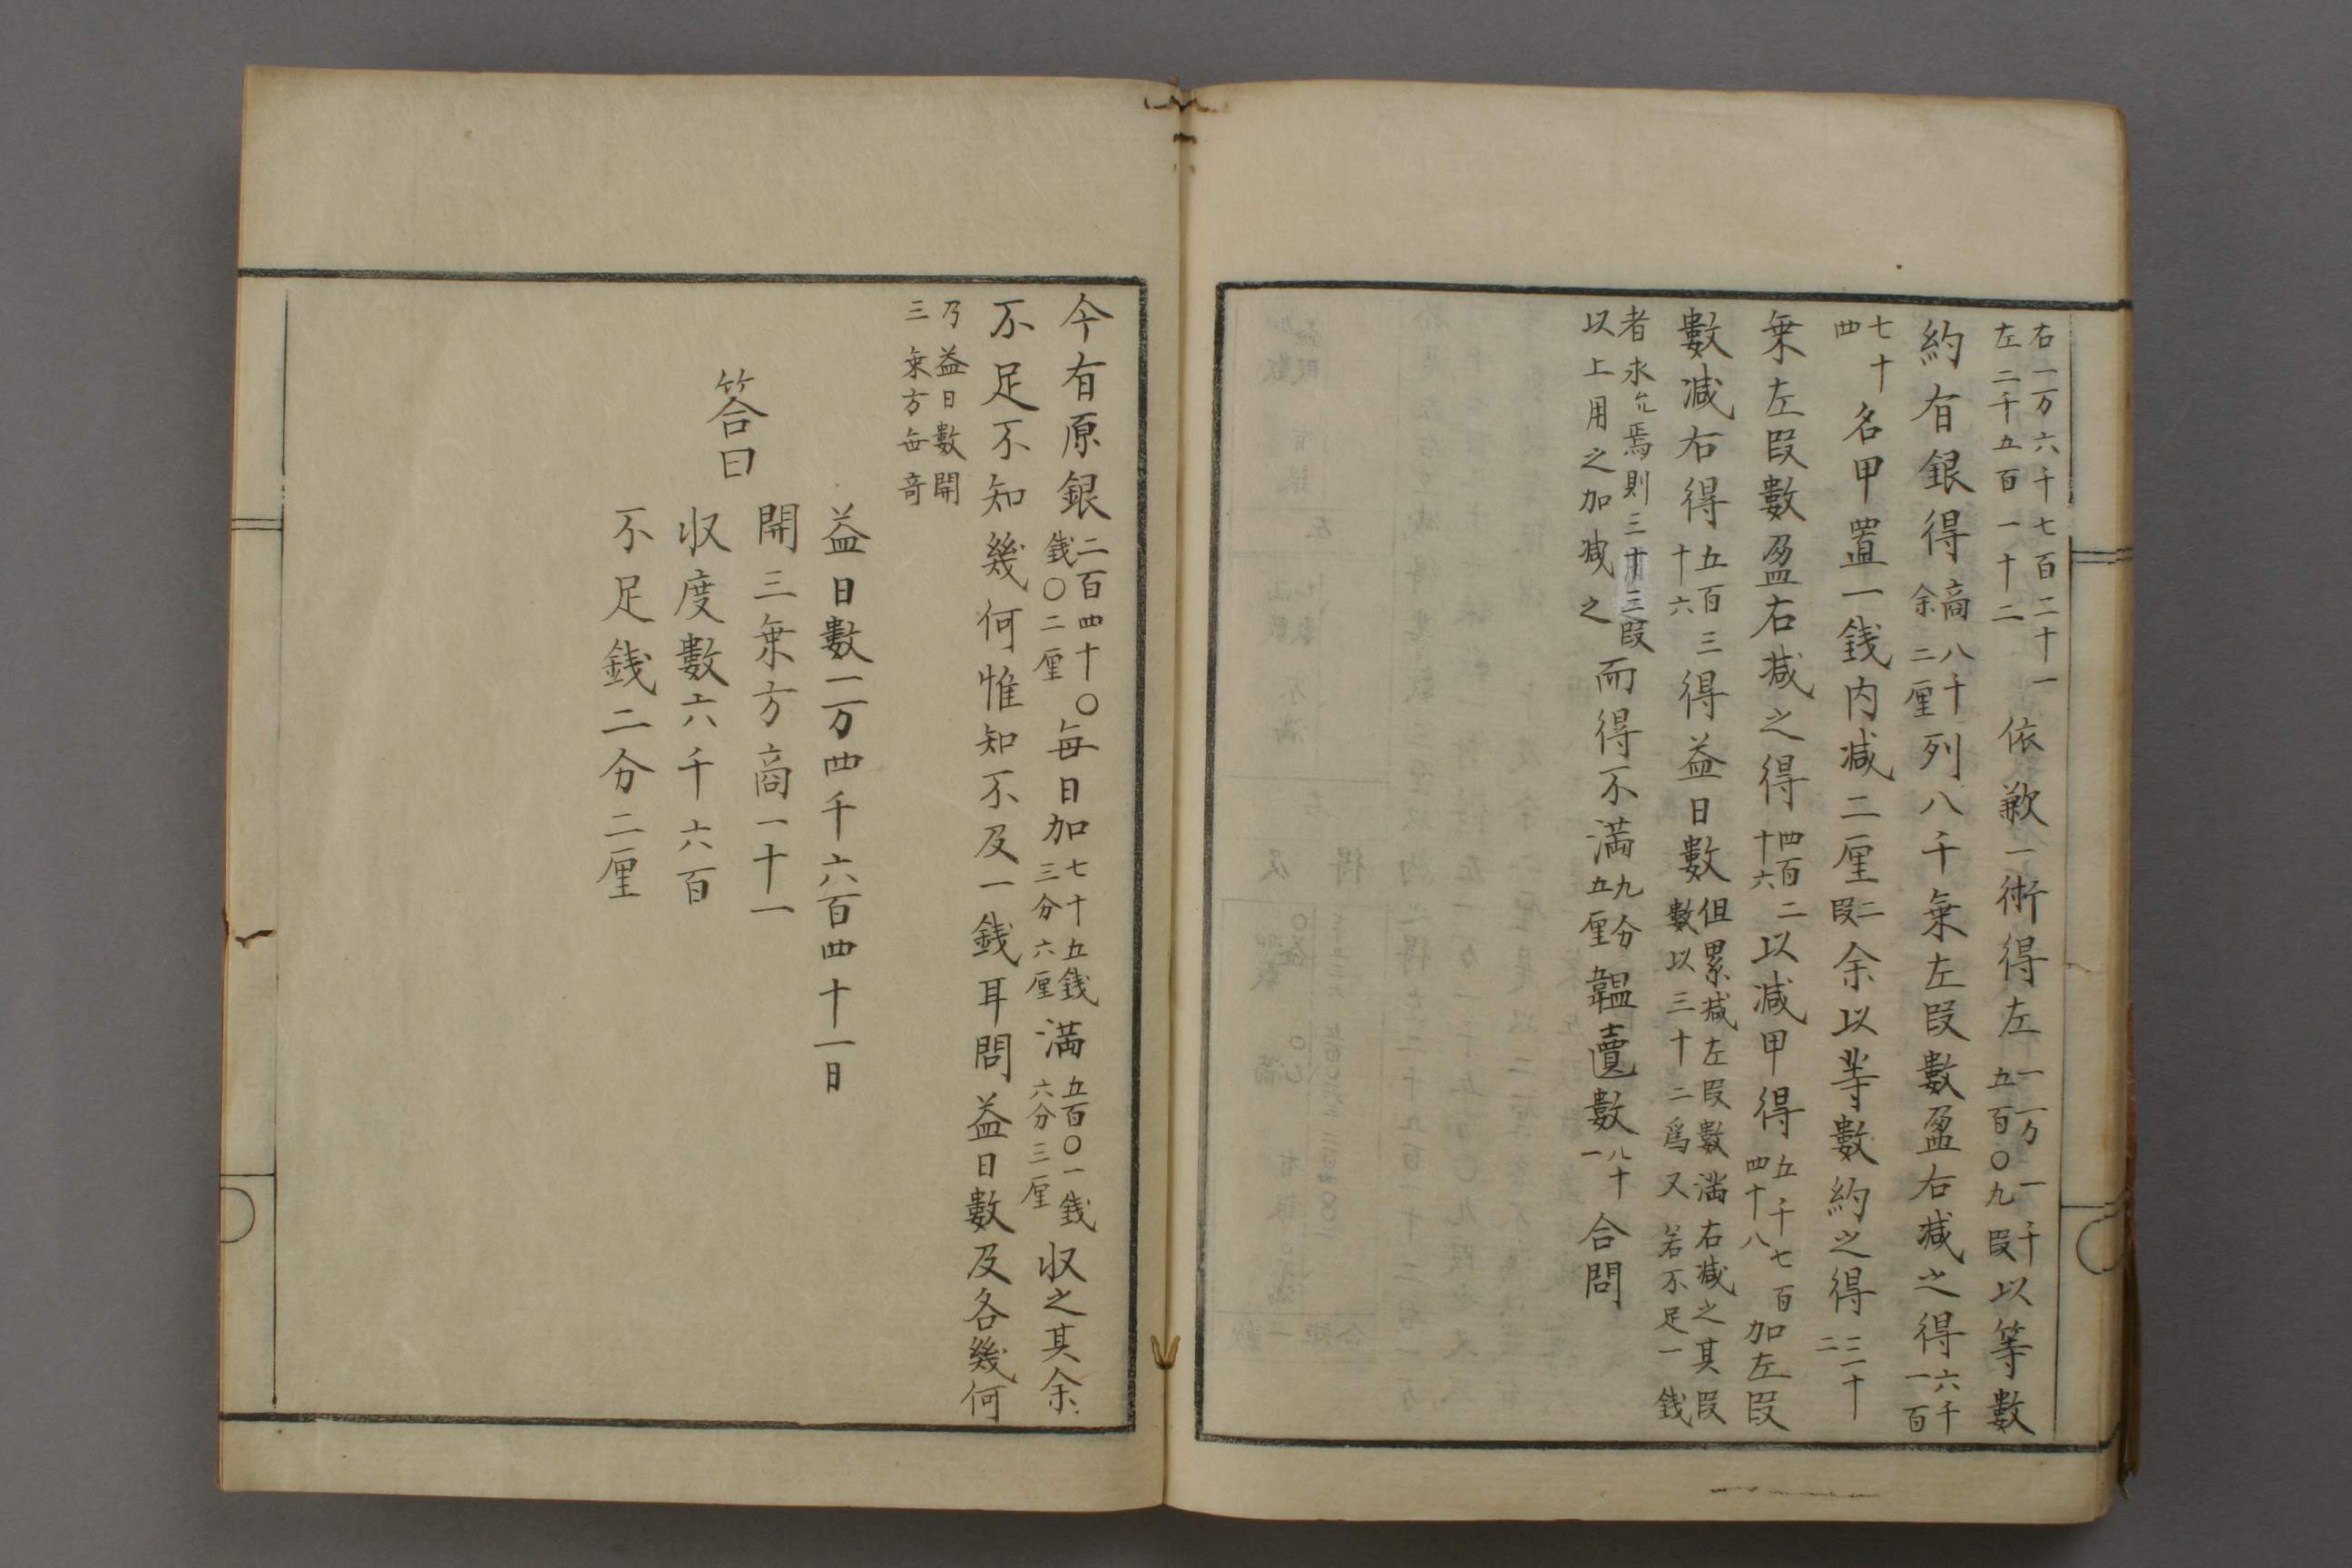 右一万六千七百二十一左二千五百一十二依歉一術得左一万一千五百〇九段以等數
約有銀得商八千余二厘列八千乗左段數盈右減之得六千一百
七十四名甲置一銭内減二厘二段余以等數約之得三十二
乗左段數盈右減之得四百二十六以減甲得五千七百四十八加左段
數減右得五百三十六得益日數但累減左段數満右減之其段數以三十二爲又若不足一銭
者永焉則三十用三段以上用之加減之而得不満九分五厘韞匵數八十一合問
今有原銀二百四十〇銭〇二厘毎日加七十五銭三分六厘満五百〇一銭六分三厘収之其余
不足不知幾何惟知不及一銭耳問益日數及各幾何
乃益日數開三乗方毎竒
答曰
益日數二万四千六百四十一日
開三乗方商一十一
収度數六千六百
不足銭二分二厘